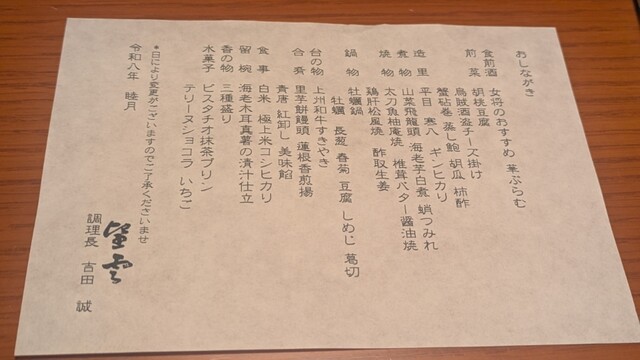 おしながき
食前酒 女将のおすすめ 華ぷらむ
前菜 胡桃豆腐
烏賊酒盗チーズ掛け
蟹砧巻 蒸し鮑 胡瓜 柿酢
造里 平目 寒八 ギンヒカリ
煮物 山菜飛龍頭 海老芋白煮 蛸つみれ
焼物 太刀魚柚庵焼 椎茸バター醤油焼
鶏肝松風焼 酢取生姜
鍋物 牡蠣鍋
牡蠣 長葱 春菊 豆腐 しめじ 葛切
台の物 上州和牛すきやき
合肴 里芋餅饅頭 蓮根香煎揚
青唐 紅卸し 美味餡
食事 白米 極上米コシヒカリ
留椀 海老木耳真薯の清汁仕立
香の物 三種盛り
水菓子 ピスタチオ抹茶プリン
テリーヌショコラ いちご
*日により変更がございますのでご了承くださいませ
令和八年 睦月
望雲
調理長 吉田 誠